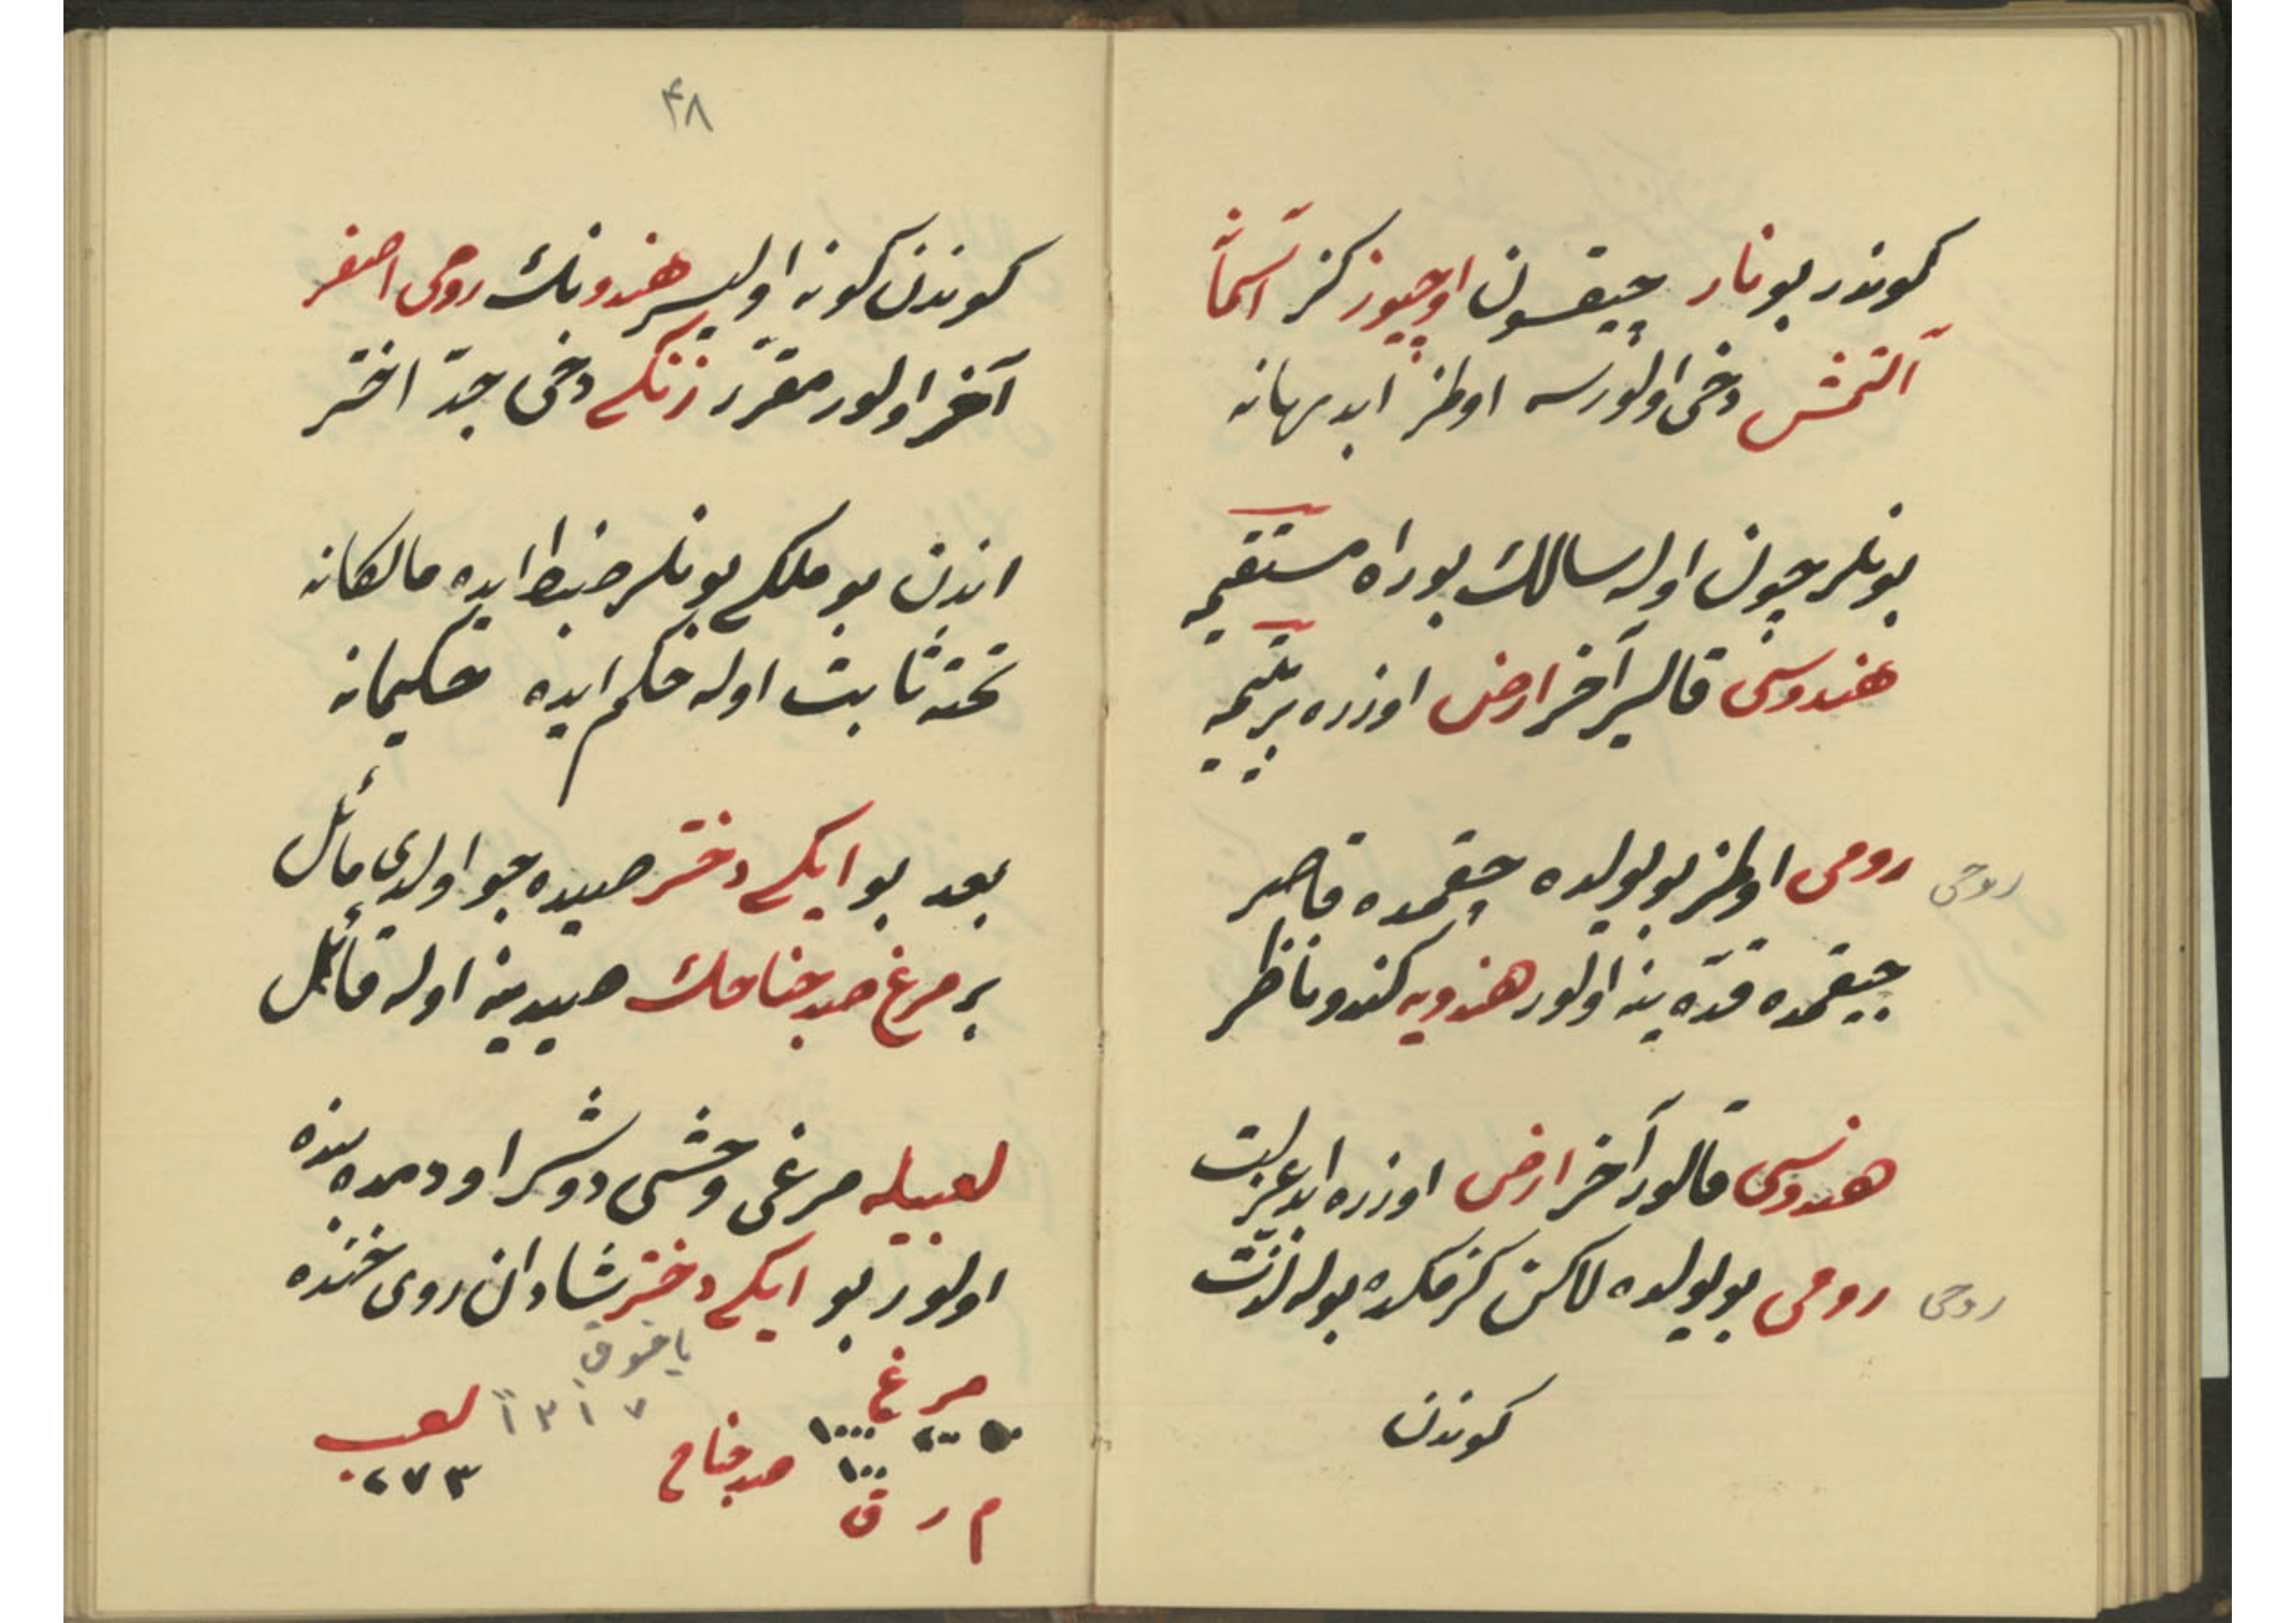 كوندر بو نار چيقسون اوچيوز كز آسمانه
آلتمش دخى اولورسه اوطز ايد بهانه
بونلر چون اوله سالك بو راه مستقيمه
هندوسى قالير آخر ارض اوزره بر يتيمه
رومى اوطز بو يولده چقمده قاصر
روحى
چيقمده قده ينه اولور هندويه كندو ناظر
هندوسى قالور آخر ارض اوزره ايد عزلت
رومى بو يولده لاكن كزمكده بوله لذت
روحى
كوندن
۴۸
كوندن كونه اوليسر هندونك رومى اصفر
آخر اولور مقرر زنكى دخى جد اختر
اندن بو ملكى بونلر ضبط ايده مالكانه
تخته ثابت اوله حكم ايده حكيمانه
بعد بو ايكى دختر صيده جو اولدى مائل
بر مرغ صد جناحك صيدينه اوله قائل
لعبيله مرغى وحشى دوشر او دمده بنده
اولور بو ايكى دختر شادان روى خنده
مرغ
صد جناح
لعب
۲۷۳
م ر ق